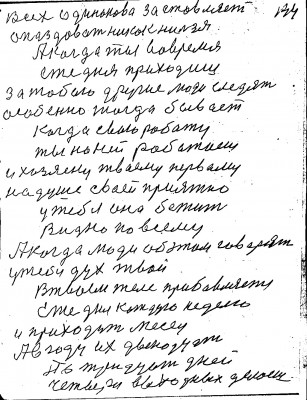 134
Всех одинакова заставляет
опаздоват никак нильзя
А когда ты вовремя
ежедня приходиш
за тобою другие люди следят
особенно тогда бывает
когда свою работу
ты на ней работаеш
и хозяену твоему первому
на душе своей приятно
у тебя она бежит
Видно по всему
А когда люди об этом говорят
у тебя дух твой
В твоём теле прибавляеть
Еже дня каждую неделю
и приходит месец
А в году их двенадцат
По тридцат дней
Четыри выходных делают